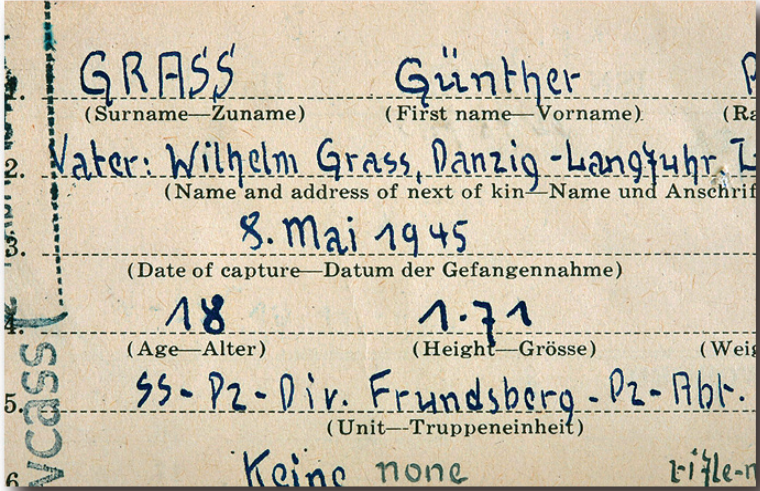 GRASS Günther
1. (Surname—Zuname) (First name—Vorname) (Ra
2. Vater: Wilhelm Grass, Danzig-Langfuhr,
(Name and address of next of kin—Name und Anschrif
8. Mai 1945
3. (Date of capture—Datum der Gefangennahme)
4. 18 1.71
(Age—Alter) (Height—Grösse) (Weig
5. SS-Pz-Div. Frundsberg-Pz-Abt.
(Unit—Truppeneinheit)
6 Keine none rifle-
vcass